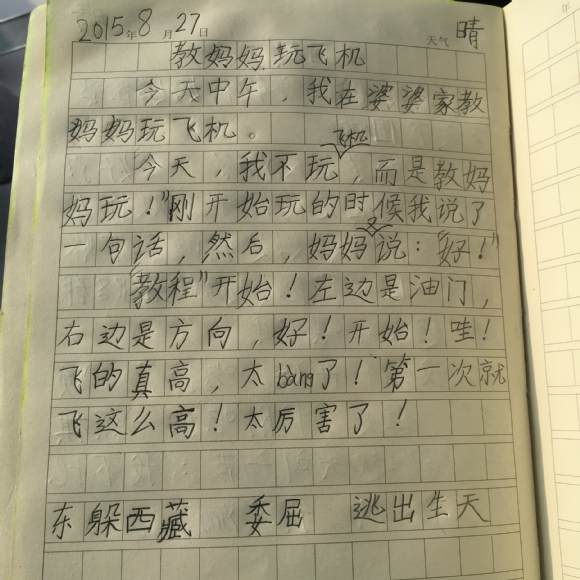 2015年8月27日 天气 晴
教妈妈玩飞机
今天中午，我在婆婆家教
妈妈玩飞机。
今天，我不玩飞机，而是教妈
妈玩！"刚开始玩的时候我说了
一句话，然后，妈妈说："好！"
"教程"开始！左边是油门，
右边是方向，好！开始！哇！
飞的真高，太bàng了！第一次就
飞这么高！太厉害了！
东躲西藏 委屈 逃出生天